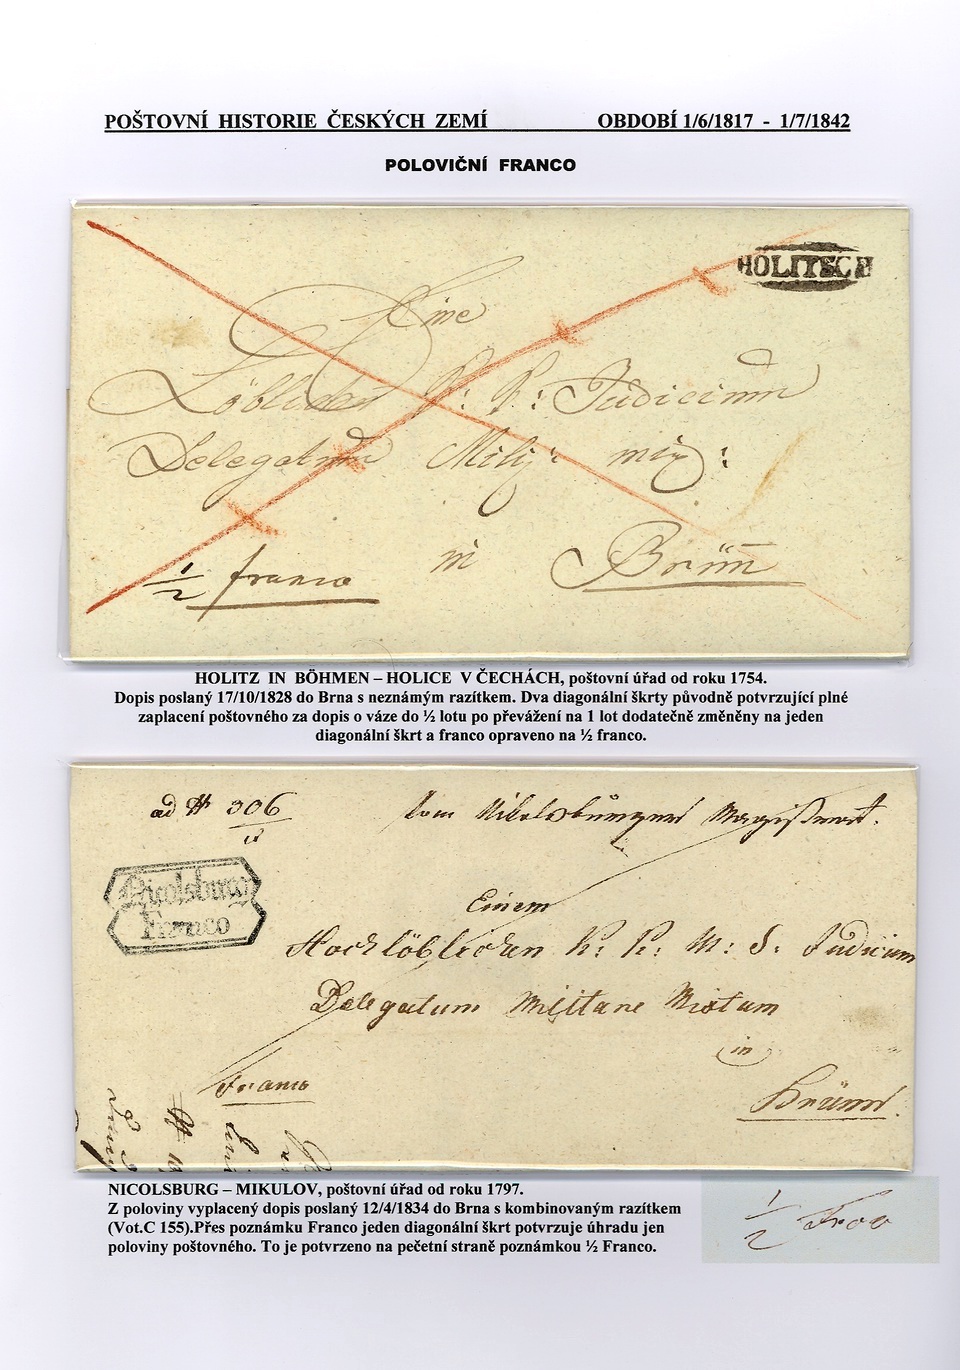 POŠTOVNÍ HISTORIE ČESKÝCH ZEMÍ OBDOBÍ 1/6/1817 - 1/7/1842
POLOVIČNÍ FRANCO
HOLITSCH
Eine
Löbliches K: K: Judicium
Delegatum Milij: mix:
in Brünn
1/2 franco
HOLITZ IN BÖHMEN – HOLICE V ČECHÁCH, poštovní úřad od roku 1754.
Dopis poslaný 17/10/1828 do Brna s neznámým razítkem. Dva diagonální škrty původně potvrzující plné
zaplacení poštovného za dopis o váze do ½ lotu po převážení na 1 lot dodatečně změněny na jeden
diagonální škrt a franco opraveno na ½ franco.
ad # 306
Vom Nikolsburger Magistrat.
Nicolsburg
Franco
Einem
Hochlöblichen K: K: M: S: Judicium
Delegatum Militare Mixtum
in
Franco
Brünn.
NICOLSBURG – MIKULOV, poštovní úřad od roku 1797.
Z poloviny vyplacený dopis poslaný 12/4/1834 do Brna s kombinovaným razítkem
(Vot.C 155).Přes poznámku Franco jeden diagonální škrt potvrzuje úhradu jen
poloviny poštovného. To je potvrzeno na pečetní straně poznámkou ½ Franco.
1/2 Frco